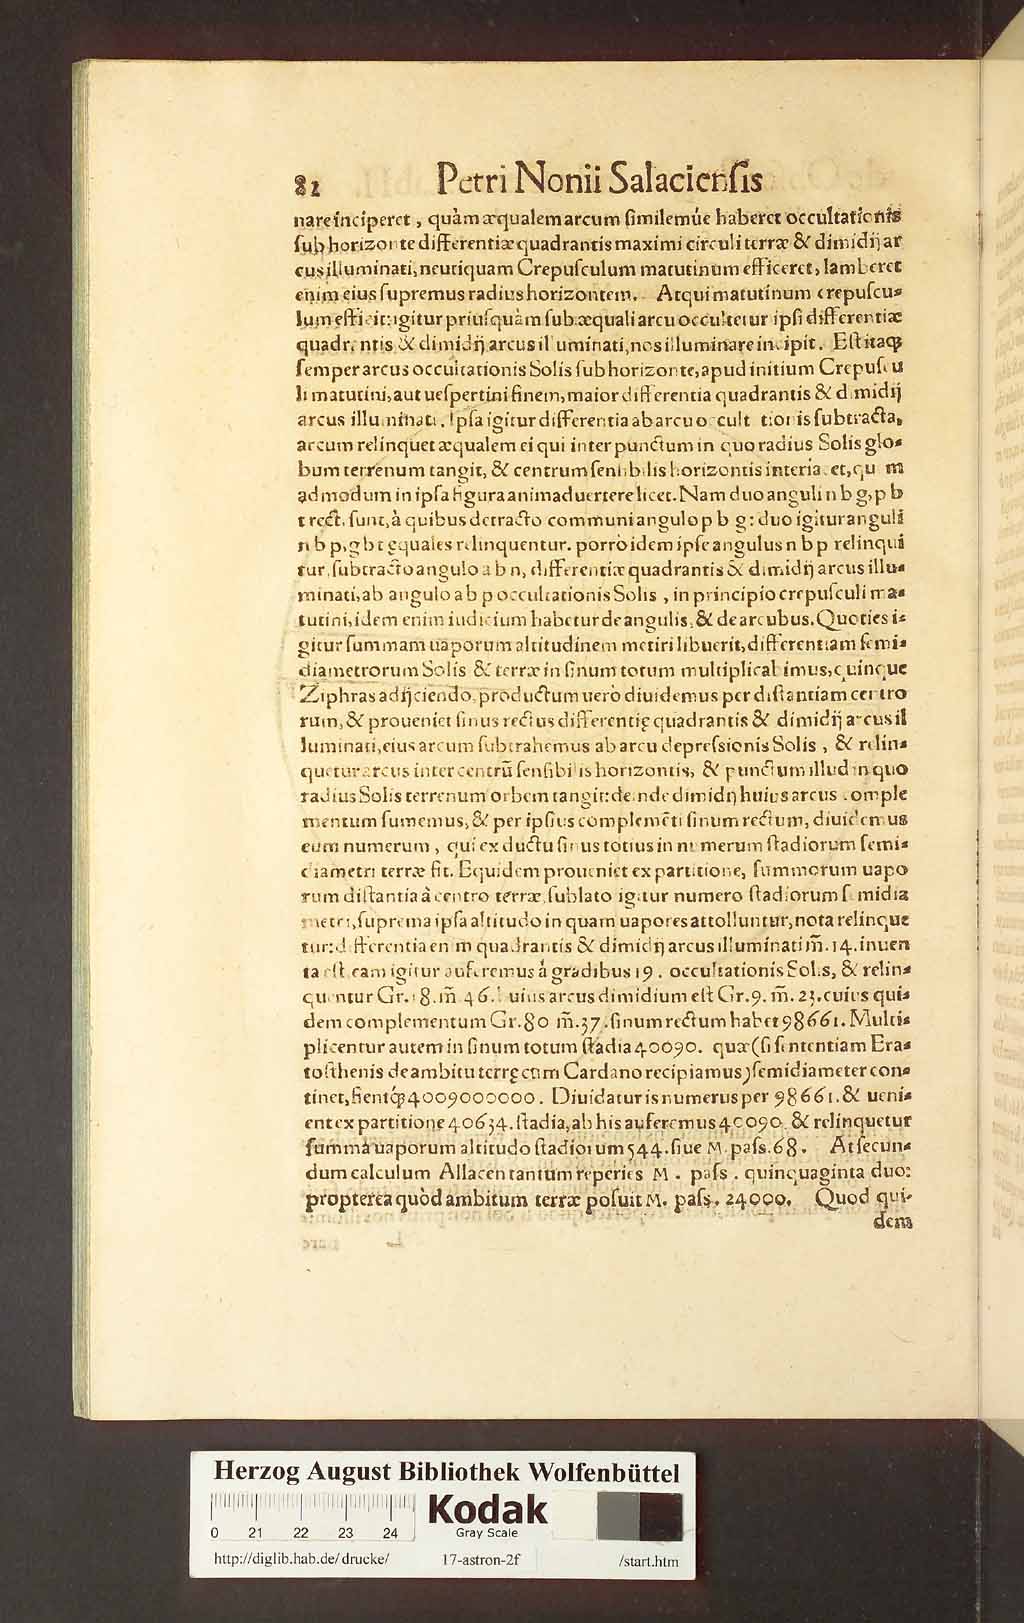 82 Petri Nonii Salaciensis
nare inciperet, quàm æqualem arcum similemúe haberet occultationis
sub horizonte differentiæ quadrantis maximi circuli terræ & dimidij ar
cus illuminati, neutiquam Crepusculum matutinum efficeret, lamberet
enim eius supremus radius horizontem. Atqui matutinum crepuscu-
lum efficit: igitur priusquàm sub æquali arcu occultetur ipsi differentiæ
quadrantis & dimidij arcus illuminati, nos illuminare incipit. Est itaq;
semper arcus occultationis Solis sub horizonte, apud initium Crepuscu
li matutini, aut uespertini finem, maior differentia quadrantis & dimidij
arcus illuminati. Ipsa igitur differentia ab arcu occultationis subtracta,
arcum relinquet æqualem ei qui inter punctum in quo radius Solis glo-
bum terrenum tangit, & centrum sensibilis horizontis interiacet, quem
admodum in ipsa figura animaduertere licet. Nam duo anguli n b g, p b
t recti sunt, à quibus detracto communi angulo p b g: duo igitur anguli
n b p, g b t ęquales relinquentur. porrò idem ipse angulus n b p relinqui
tur, subtracto angulo a b n, differentiæ quadrantis & dimidij arcus illu-
minati, ab angulo a b p occultationis Solis, in principio crepusculi ma-
tutini, idem enim iudicium habetur de angulis, & de arcubus. Quoties i-
gitur summam uaporum altitudinem metiri libuerit, differentiam semi-
diametrorum Solis & terræ in sinum totum multiplicabimus, quinque
Ziphras adijciendo, productum uerò diuidemus per distantiam centro
rum, & proueniet sinus rectus differentię quadrantis & dimidij arcus il
luminati, eius arcum subtrahemus ab arcu depressionis Solis, & relin-
quetur arcus inter centrũ sensibilis horizontis, & punctum illud in quo
radius Solis terrenum orbem tangit: deinde dimidij huius arcus comple
mentum sumemus, & per ipsius complemēti sinum rectum, diuidemus
eum numerum, qui ex ductu sinus totius in numerum stadiorum semi-
diametri terræ fit. Equidem proueniet ex partitione, summorum uapo
rum distantia à centro terræ, sublato igitur numero stadiorum semidia
metri, suprema ipsa altitudo in quam uapores attolluntur, nota relinque
tur: differentia enim quadrantis & dimidij arcus illuminati m̃. 14. inuen
ta est, eam igitur auferemus à gradibus 19. occultationis Solis, & relin-
quentur Gr. 18. m̃. 46. huius arcus dimidium est Gr. 9. m̃. 23. cuius qui-
dem complementum Gr. 80 m̃. 37. sinum rectum habet 98661. Multi-
plicentur autem in sinum totum stadia 40090. quæ (si sententiam Era-
tosthenis de ambitu terrę cum Cardano recipiamus) semidiameter con-
tinet, fientq́; 4009000000. Diuidatur is numerus per 98661. & ueni-
ent ex partitione 40634. stadia, ab his auferemus 40090. & relinquetur
summa uaporum altitudo stadiorum 544. siue M. pass. 68. At secun-
dum calculum Allacen tantum reperies M. pass. quinquaginta duo:
propterea quòd ambitum terræ posuit M. pass. 24000. Quod qui-
dem
Herzog August Bibliothek Wolfenbüttel
Kodak
Gray Scale
0 21 22 23 24
http://diglib.hab.de/drucke/ 17-astron-2f /start.htm